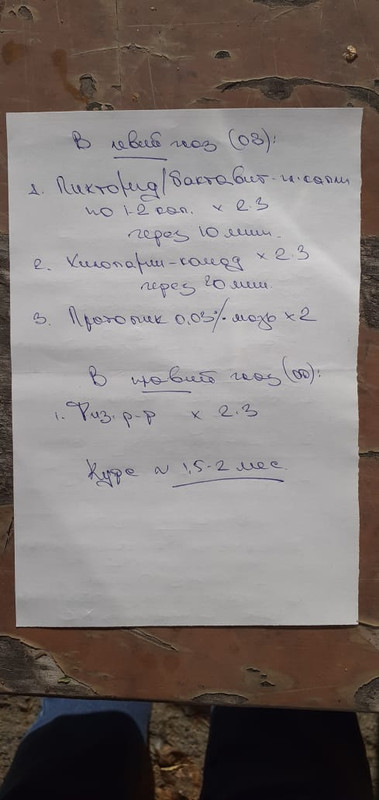 В левый глаз (OS):
1. Пикторид/Бактавит-н.сопли
по 1-2 кап. х 2-3
через 10 мин.
2. Хилопарин-комод х 2-3
через 20 мин.
3. Протопик 0,03% мазь х 2
В правый глаз (OD):
1. Физ. р-р х 2-3
Курс ~ 1,5-2 мес.